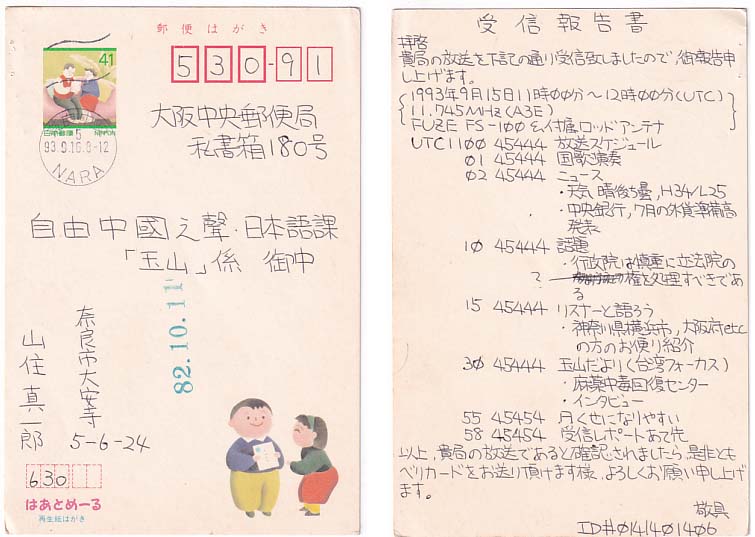 郵便はがき
41
日本郵便
NIPPON
93 9.16.8-12
NARA
530-91
大阪中央郵便局
私書箱180号
自由中國之聲・日本語課
「玉山」係 御中
82.10.11
奈良市大安寺
5-6-24
山住真一郎
630
はあとめーる
再生紙はがき
受信報告書
拝啓
貴局の放送を下記の通り受信致しましたので,御報告申
し上げます。
1993年9月15日11時00分~12時00分(UTC)
11.745MHz(A3E)
FUZE FS-100と付属ロッドアンテナ
UTC1100 45444 放送スケジュール
01 45444 国歌演奏
02 45444 ニュース
・天気 晴後ち曇,H34/L25
・中央銀行,7月の外貨準備高
発表
10 45444 話題
・行政院は慎重に立法院の
?権を処理すべきであ
る
15 45444 リスナーと語ろう
・神奈川県横浜市,大阪府etc
の方のお便り紹介
30 45444 玉山だより(台湾フォーカス)
・麻薬中毒回復センター
・インタビュー
55 45454 月くせになりやすい
58 45454 受信レポートあて先
以上,貴局の放送であると確認されましたら,是非とも
ベリカードをお送り頂けます様,よろしくお願い申し上げ
ます。
敬具
ID#0141401406